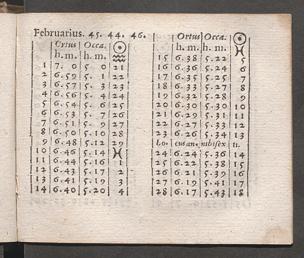 Februarius. 45. 44. 46.
Ortus Occa. ☉
h. m. h. m. ♒
1 7. 0 5. 0 21
2 6.59 5. 1 22
3 6.57 5. 3 23
4 6.56 5. 4 24
5 6.54 5. 6 25
6 6.53 5. 7 26
7 6.51 5. 9 27
8 6.50 5.10 28
9 6.48 5.12 29
10 6.46 5.14 ♓
11 6.44 5.16 1
12 6.43 5.17 2
13 6.42 5.19 3
14 6.40 5.20 4
Ortus Occa. ☉
h. m. h. m. ♓
15 6.38 5.22 5
16 6.36 5.24 6
17 6.35 5.25 7
18 6.33 5.27 8
19 6.32 5.28 9
20 6.30 5.30 10
21 6.29 5.31 11
22 6.27 5.33 12
23 6.26 5.34 13
24 6.24 5.36 14
25 6.22 5.38 15
26 6.21 5.39 16
27 6.19 5.41 17
28 6.17 5.43 18